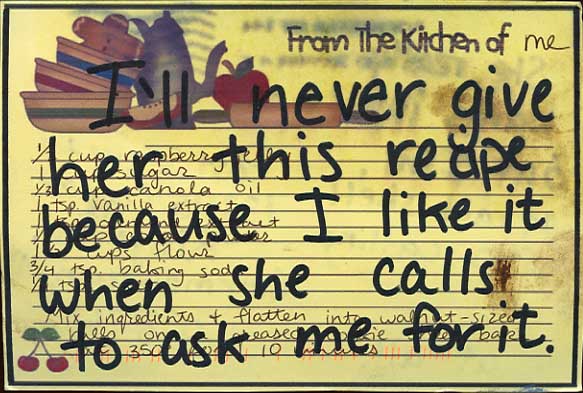 From The Kitchen of me
I'll never give
her this recipe
because I like it
when she calls
to ask me for it.
cup raspberry
cup sugar
1/3 cup canola oil
1 tsp. vanilla extract
extract
powder
cups flour
3/4 tsp. baking soda
tsp.
Mix ingredients & flatten into walnut-sized
on greased
350 10 minutes